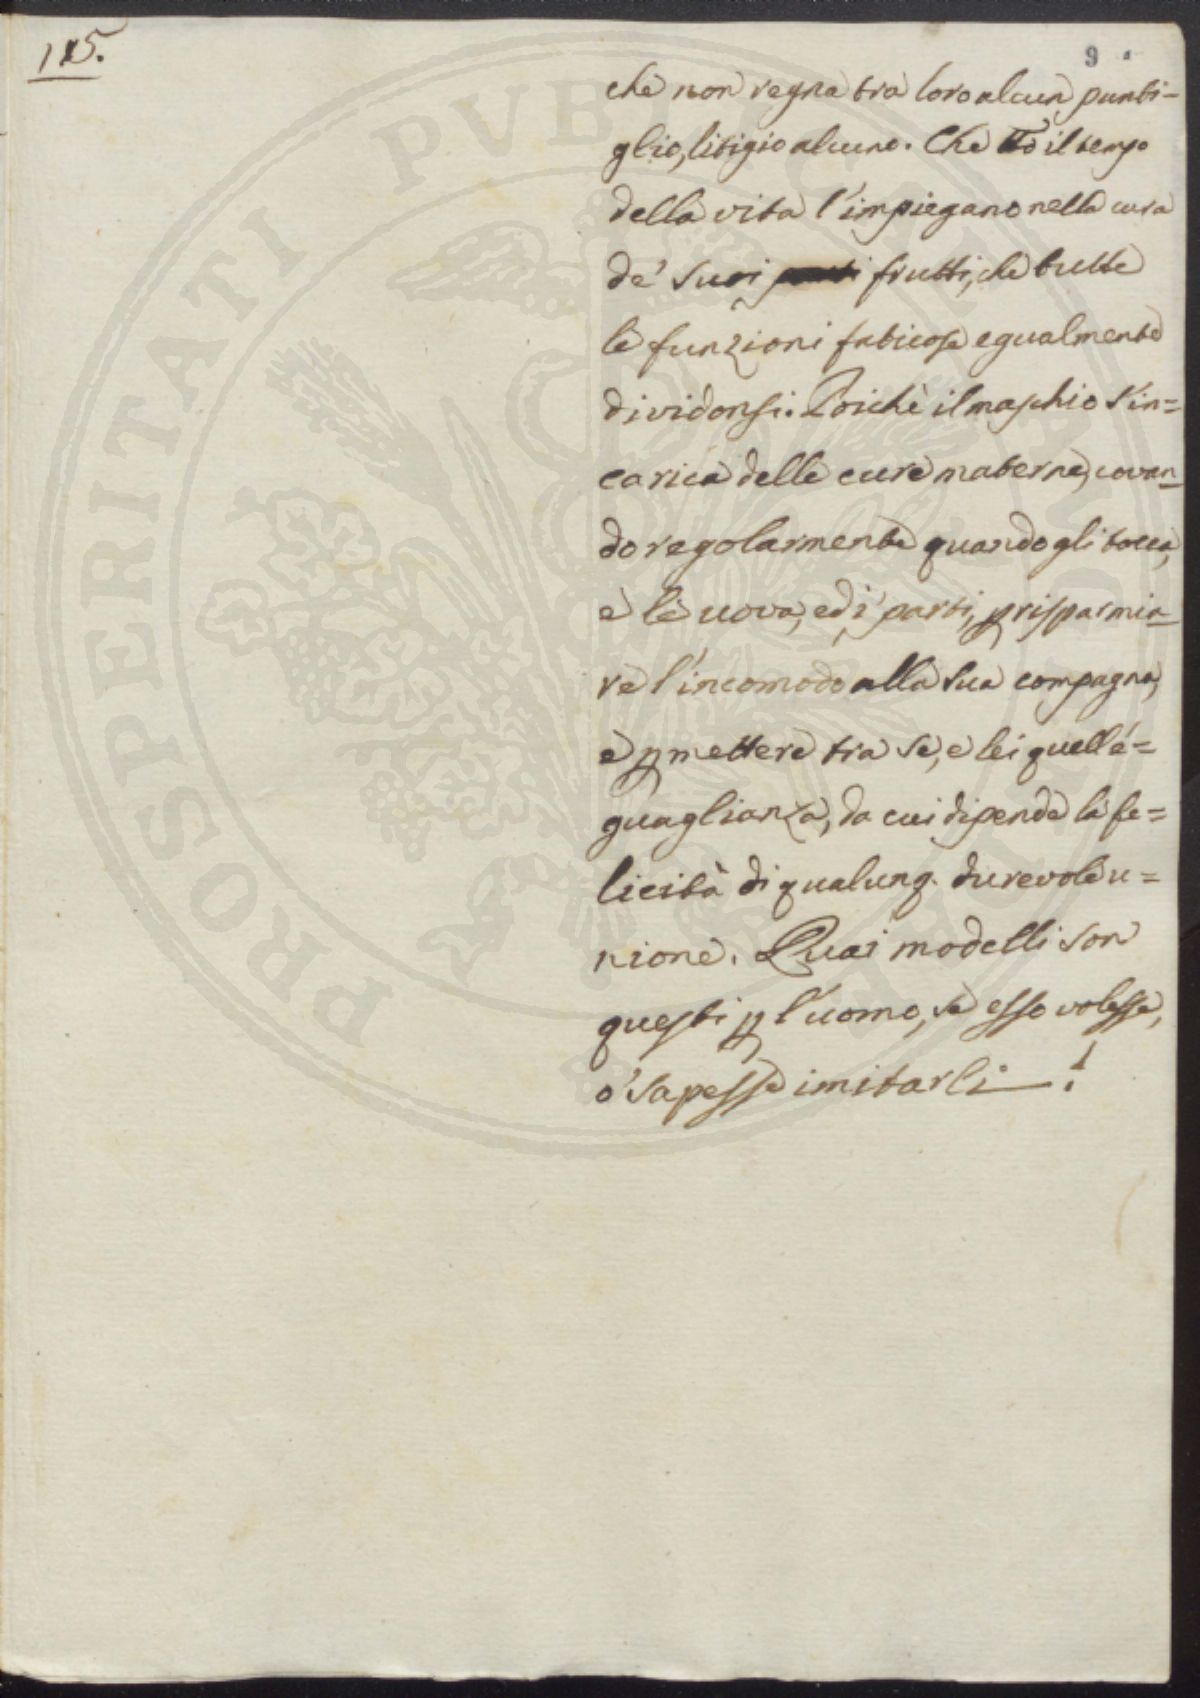 115.
9
che non regna tra loro alcun punti-
glio, litigio alcuno. Che tto il tempo
della vita l'impiegano nella cura
de' suoi frutti, che tutte
le funzioni faticose egualmente
dividonsi. Poichè il maschio s'in=
carica delle cure materne, covan=
do regolarmente quando gli tocca,
e le uova, ed i parti, p risparmia=
re l'incomodo alla sua compagna,
e p mettere tra se, e lei quell'e=
guaglianza, da cui dipende la fe=
licità di qualunq. durevole u=
nione. Quai modelli son
questi p l'uomo, se esso volesse,
o' sapesse imitarli !
PROSPERITATI PVBLICAE AVGENDAE